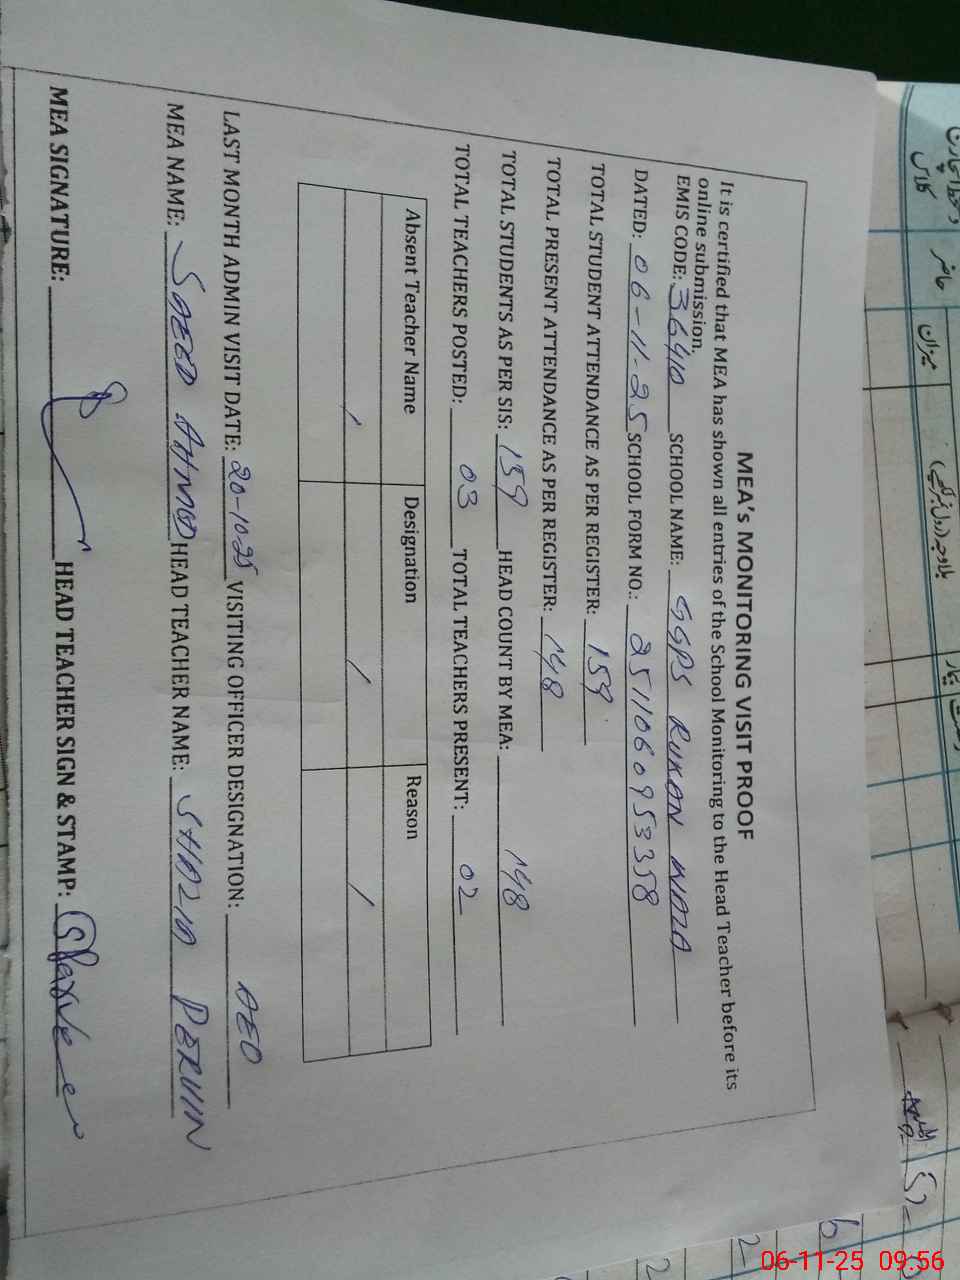 MEA's MONITORING VISIT PROOF
It is certified that MEA has shown all entries of the School Monitoring to the Head Teacher before its
online submission.
EMIS CODE: 36410 SCHOOL NAME: GGPS RUKAN WALA
DATED: 06-11-25 SCHOOL FORM NO.: 2511060953358
TOTAL STUDENT ATTENDANCE AS PER REGISTER: 159
TOTAL PRESENT ATTENDANCE AS PER REGISTER: 148
TOTAL STUDENTS AS PER SIS: 159 HEAD COUNT BY MEA: 148
TOTAL TEACHERS POSTED: 03 TOTAL TEACHERS PRESENT: 02
Absent Teacher Name Designation Reason
/ / /
LAST MONTH ADMIN VISIT DATE: 20-10-25 VISITING OFFICER DESIGNATION: AEO
MEA NAME: SAEED AHMAD HEAD TEACHER NAME: SHAZIA PERVIN
MEA SIGNATURE: HEAD TEACHER SIGN & STAMP: SParveen
حاضر
میزان
06-11-25 09:56